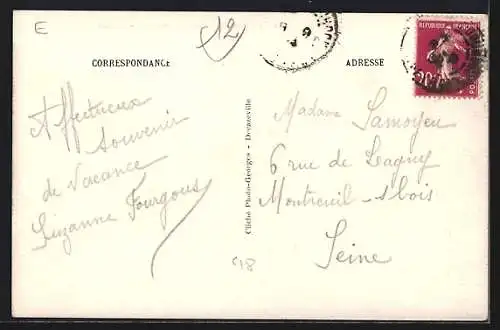 E
12
CORRESPONDANCE
ADRESSE
REPUBLIQUE FRANCAISE
Affectueux
souvenir
de vacance
Suzanne Fourgous
Cliché Photo-Georges - Decazeville
Madame Samoyeu
6 rue de Lagny
Montreuil-s/bois
Seine